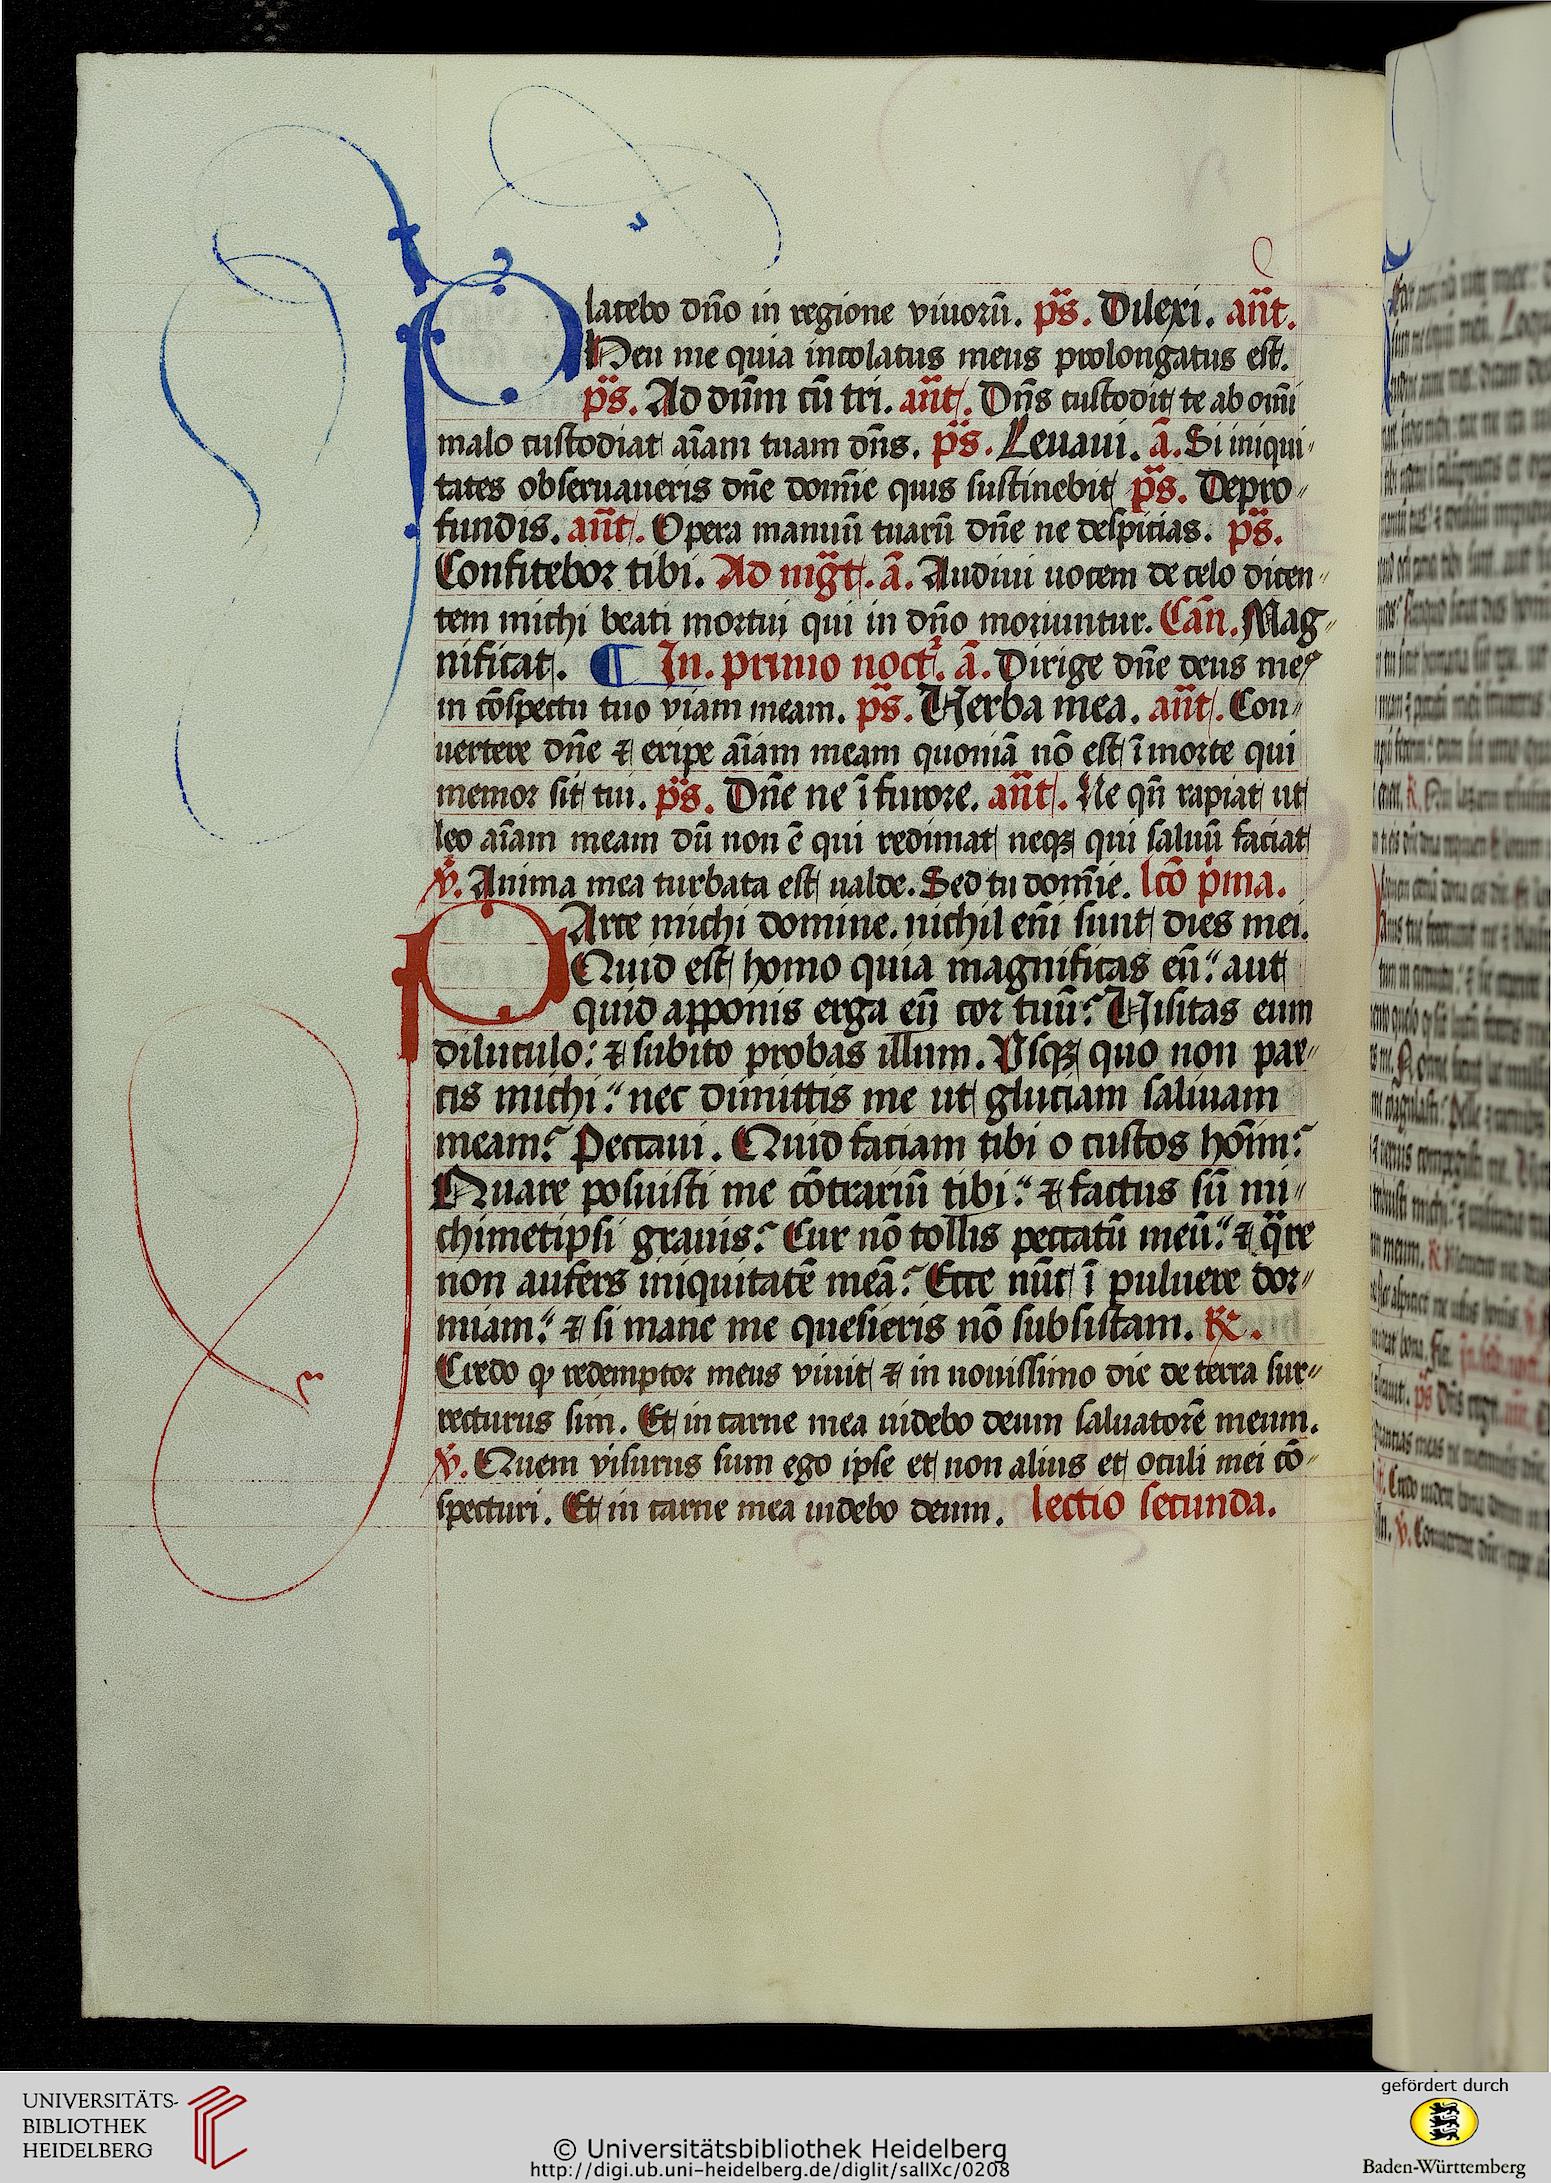 Placebo dño in regione viuorū. p̄s. Dilexi. añt.
Heu me quia incolatus meus prolongatus est.
p̄s. Ad dūm cū tri. añt. Dñs custodit te ab omī
malo custodiat aīam tuam dñs. p̄s. Leuaui. ā. Si iniqui〃
tates obseruaueris dñe domīe quis sustinebit p̄s. Depro〃
fundis. añt. Opera manuū tuarū dñe ne despicias. p̄s.
Confitebor tibi. Ad mg̅t. ā. Audiui uocem de celo dicen〃
tem michi beati mortui qui in dño moriuntur. Cañ. Mag〃
nificat. ¶ In. primo noct͛. ā. Dirige dñe deus meꝰ
in cōspectu tuo viam meam. p̄s. Uerba mea. añt. Con〃
uertere dñe ⁊ eripe aīam meam quoniā nō est ī morte qui
memor sit tui. p̄s. Dñe ne ī furore. añt. Ne qñ rapiat ut
leo aīam meam dū non ē qui redimat neqꝫ qui saluū faciat
℣. Anima mea turbata est ualde. Sed tu domīe. lcō pͥma.
PArce michi domine. nichil eñi sunt dies mei.
Quid est homo quia magnificas eū: aut
quid apponis erga eū cor tuū? Uisitas eum
diluculo: ⁊ subito probas illum. Usqꝫ quo non par〃
cis michi: nec dimittis me ut gluciam saliuam
meam? Peccaui. Quid faciam tibi o custos hoīm?
Quare posuisti me cōtrariū tibi: ⁊ factus sū mi〃
chimetipsi grauis? Cur nō tollis peccatū meū: ⁊ qᷓre
non aufers iniquitatē meā? Ecce nūc ī puluere dor〃
miam: ⁊ si mane me quesieris nō subsistam. ℞.
Credo ꝙ redemptor meus viuit ⁊ in nouissimo die de terra sur〃
recturus sum. Et in carne mea uidebo deum saluatorē meum.
℣. Quem visurus sum ego ipse et non alius et oculi mei cō〃
specturi. Et in carne mea uidebo deum. lectio secunda.
UNIVERSITÄTS-
BIBLIOTHEK
HEIDELBERG
© Universitätsbibliothek Heidelberg
http://digi.ub.uni-heidelberg.de/diglit/salIXc/0208
gefördert durch
Baden-Württemberg